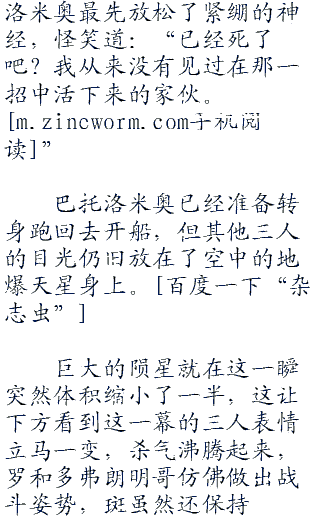 洛米奥最先放松了紧绷的神
经，怪笑道：“已经死了
吧？我从来没有见过在那一
招中活下来的家伙。
[m.zincworm.com手机阅
读]”
巴托洛米奥已经准备转
身跑回去开船，但其他三人
的目光仍旧放在了空中的地
爆天星身上。[百度一下“杂
志虫”]
巨大的陨星就在这一瞬
突然体积缩小了一半，这让
下方看到这一幕的三人表情
立马一变，杀气沸腾起来，
罗和多弗朗明哥仿佛做出战
斗姿势，斑虽然还保持